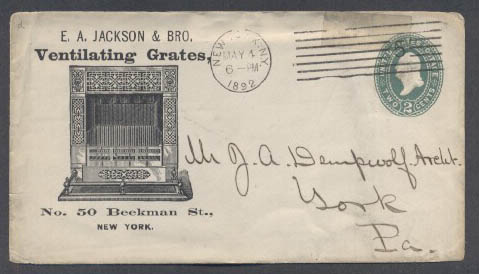 E. A. JACKSON & BRO.
Ventilating Grates,
No. 50 Beekman St.,
NEW YORK.
NEW N.Y.
MAY 4
6-PM
1892
UNITED STATES POSTAGE
TWO 2 CENTS
Mr J. A. Dempwolf, Archt.
York
Pa.